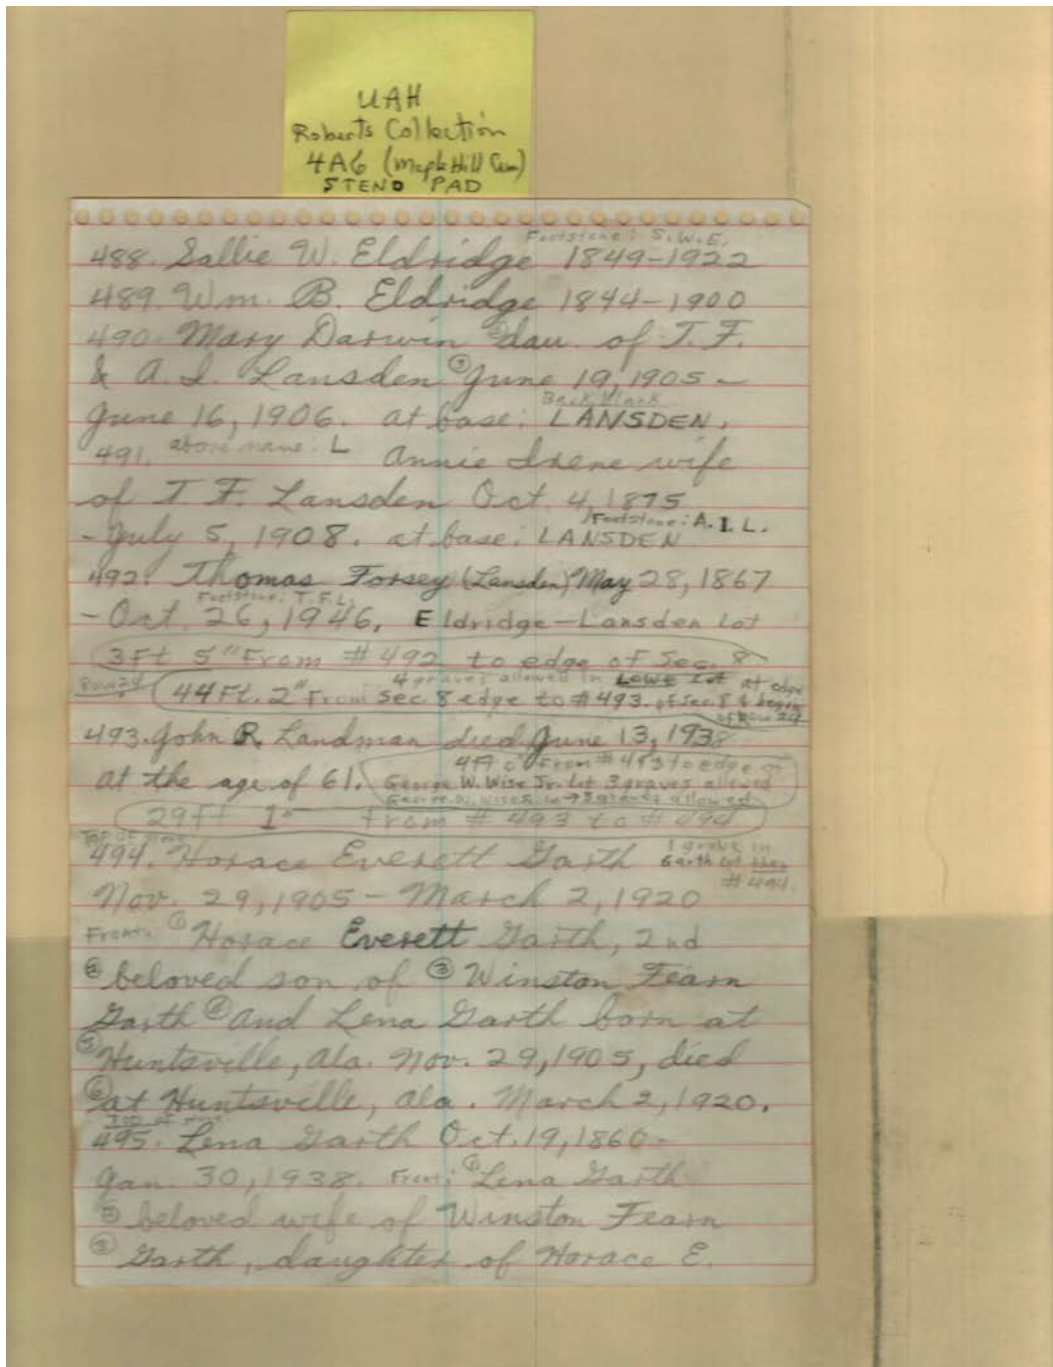 UAH
Roberts Collection
4A6 (Maple Hill Cem)
STENO PAD
Footstone: S.W.E.
488. Sallie W. Eldridge 1849-1922
489. Wm. B. Eldridge 1844-1900
490. Mary Darwin ② dau. of T. F.
& A. I. Lansden ③ June 19, 1905 -
Back blank
June 16, 1906. at base: LANSDEN.
491. above name: L Annie Irene wife
of T. F. Lansden Oct. 4, 1875
Footstone: A.I.L.
- July 5, 1908. at base: LANSDEN
492. Thomas Forsey (Lansden) May 28, 1867
Footstone: T.F.L.
- Oct. 26, 1946. Eldridge-Lansden Lot
3Ft 5" From #492 to edge of Sec. 8
4 graves allowed in Lowe Lot at edge
of Sec. 8 & begin
of Row 24
Row 24
44Ft. 2" From Sec. 8 edge to #493.
493. John R. Landman died June 13, 1938
at the age of 61.
4Ft 0" From #493 to edge of
George W. Wise Jr. Lot 3 graves allowed
George W. Wise 3 graves allowed
29ft 1" from #493 to #494
Top of
494. Horace Everett Garth
1 grave in
Garth Lot then
#494.
Nov. 29, 1905 - March 2, 1920
Front: ① Horace Everett Garth, 2nd
② beloved son of ③ Winston Fearn
Garth ④ and Lena Garth born at
⑤ Huntsville, Ala. Nov. 29, 1905, died
⑥ at Huntsville, Ala. March 2, 1920.
Top of
495. Lena Garth Oct. 19, 1860-
Jan. 30, 1938. Front: ① Lena Garth
② beloved wife of Winston Fearn
③ Garth, daughter of Horace E.